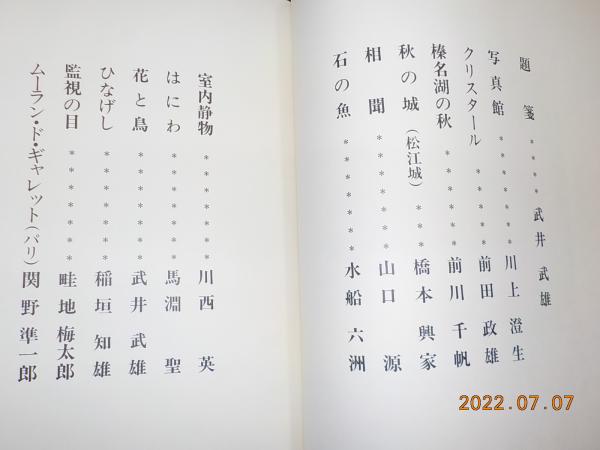 題箋****武井武雄
写真館******川上澄生
クリスタール*****前田政雄
榛名湖の秋*****前川千帆
秋の城(松江城)***橋本興家
相聞*******山口源
石の魚*******水船六洲
室内静物*******川西英
はにわ*******馬淵聖
花と鳥*******武井武雄
ひなげし*******稲垣知雄
監視の目*******畦地梅太郎
ムーラン・ド・ギャレット(パリ)関野準一郎
2022.07.07